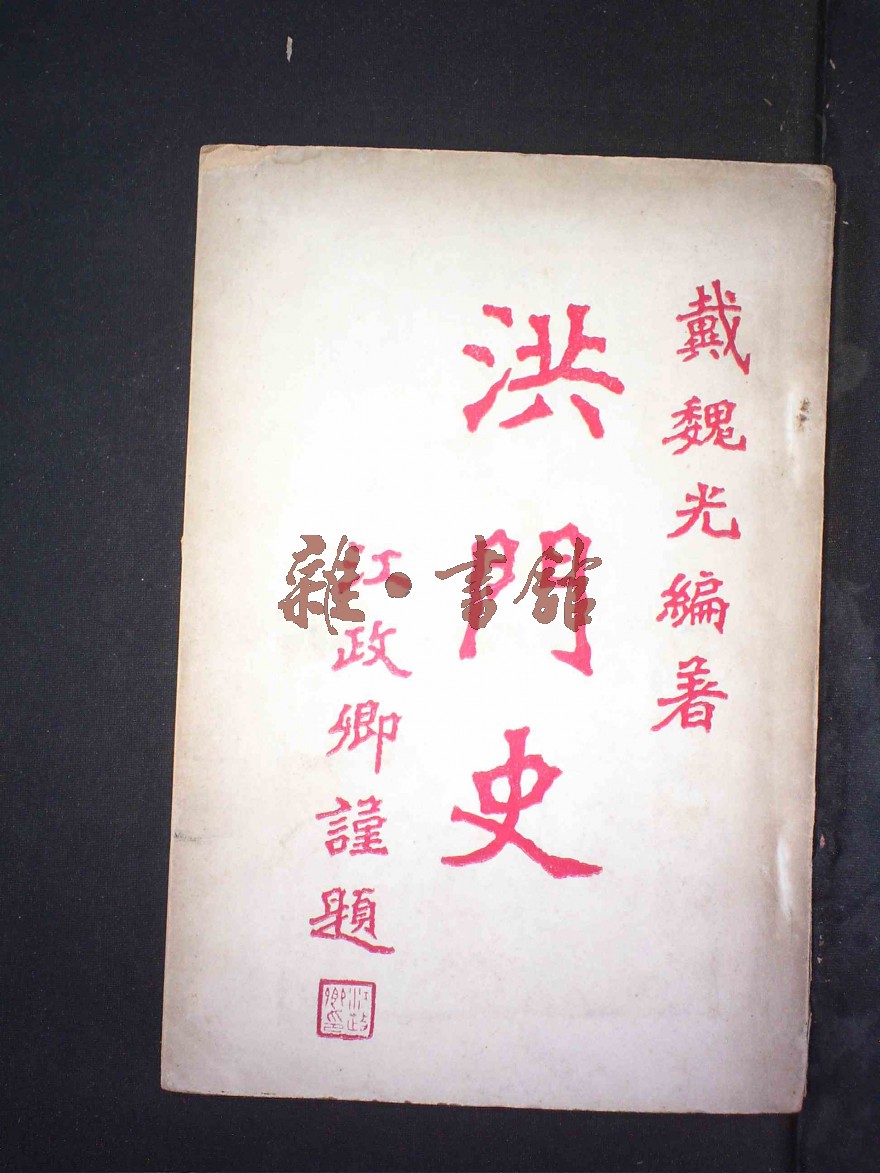 戴魏光編著
洪門史
江政卿謹題
江政卿印
雜·書館